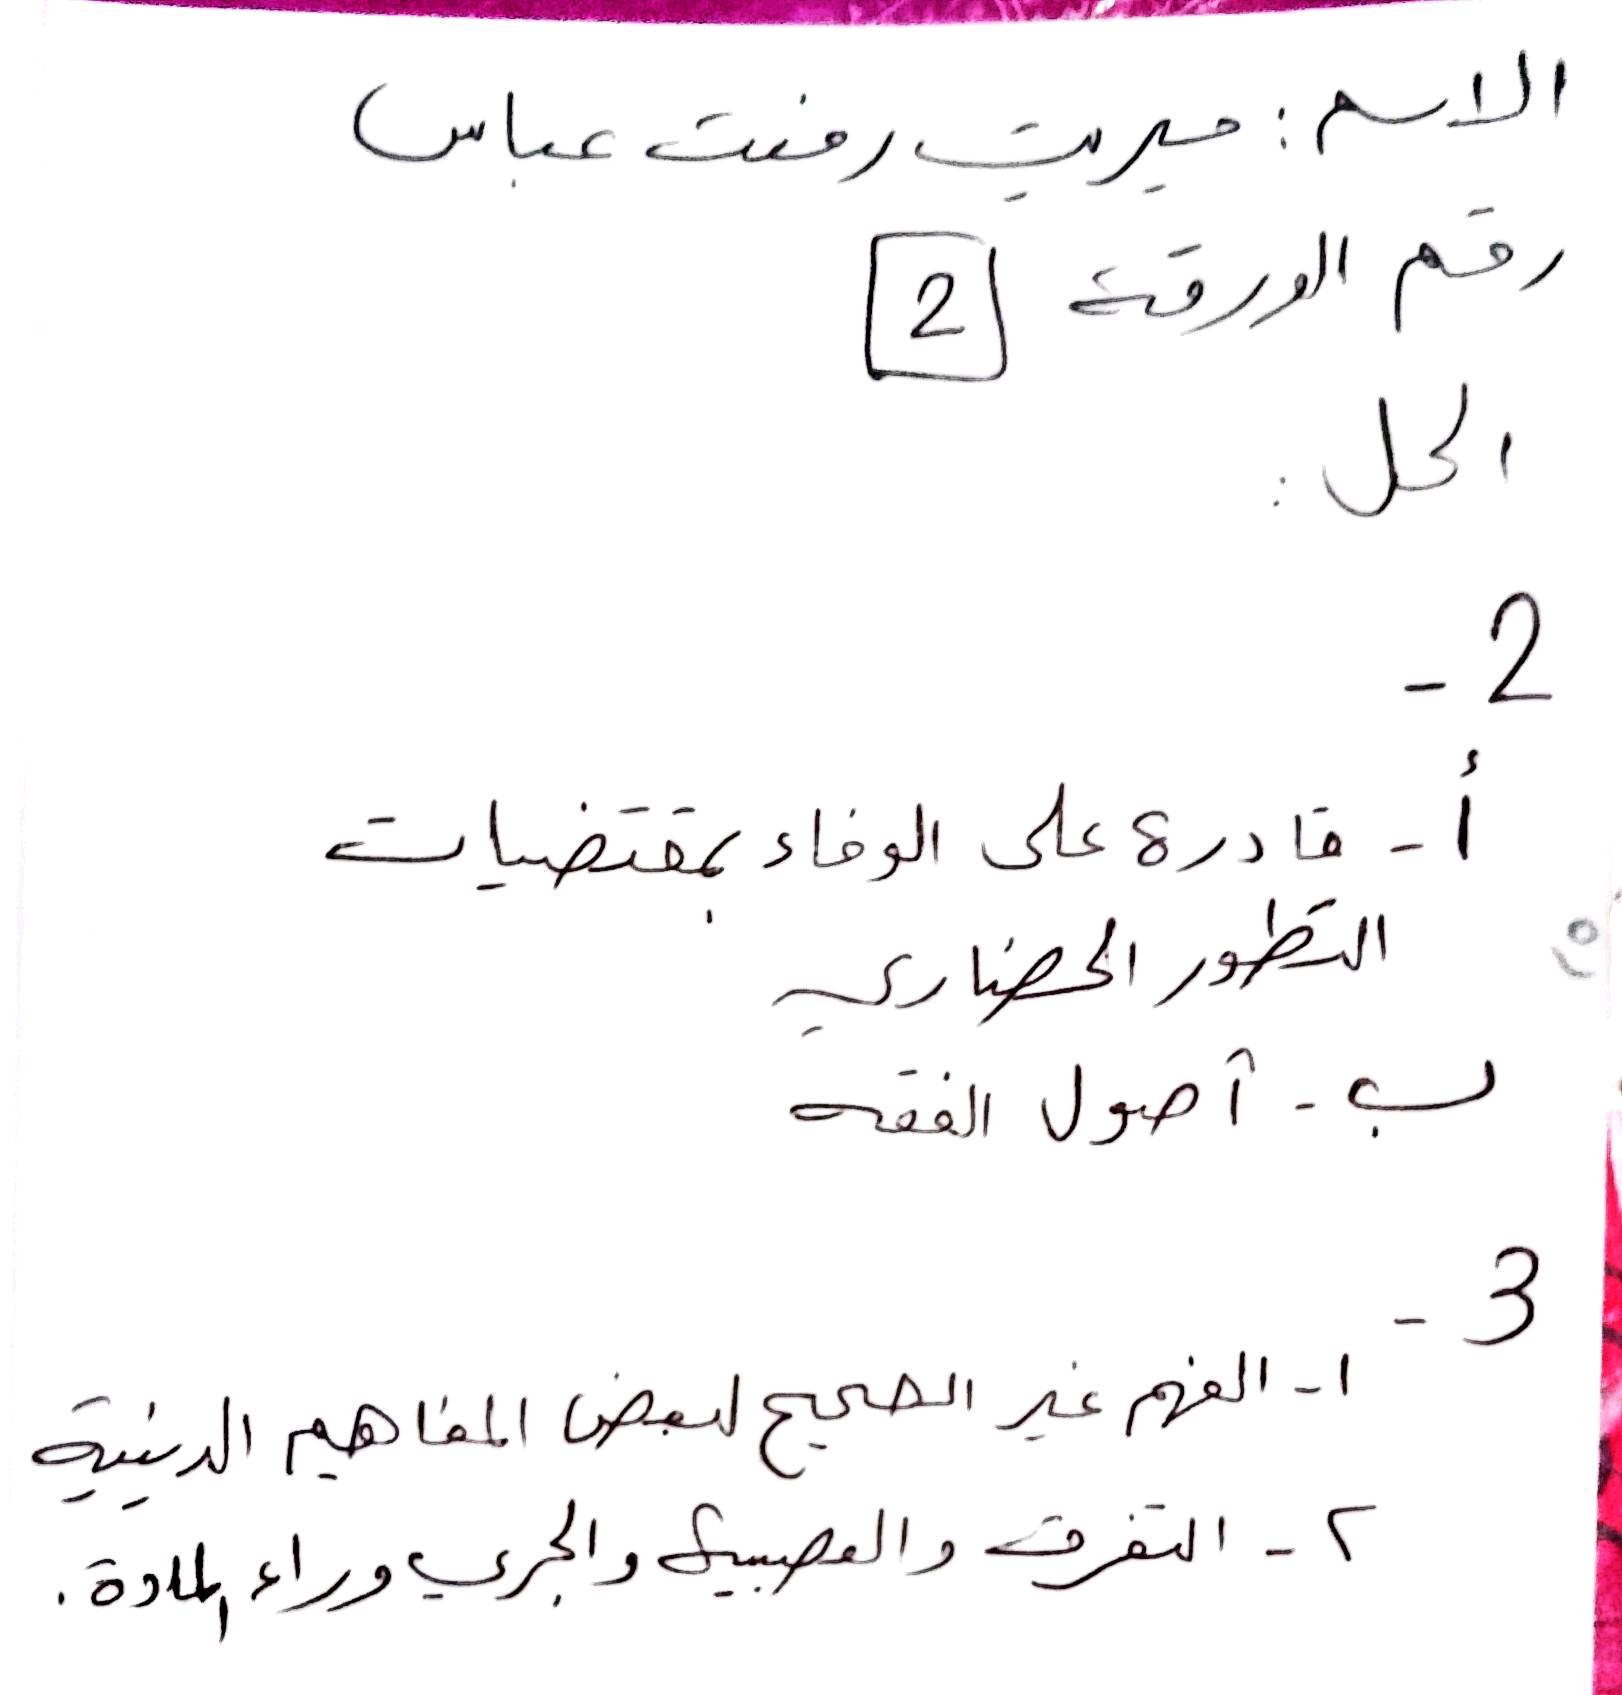 الاسم : ميريت رفعت عباس
رقم الورقة 2
الحل :
2 -
أ - قادرة على الوفاء بمقتضيات
التطور الحضاري
ب - أصول الفقه
3 -
١ - الفهم غير الصحيح لبعض المفاهيم الدينية
٢ - التفرق والعصبية والجري وراء المادة .